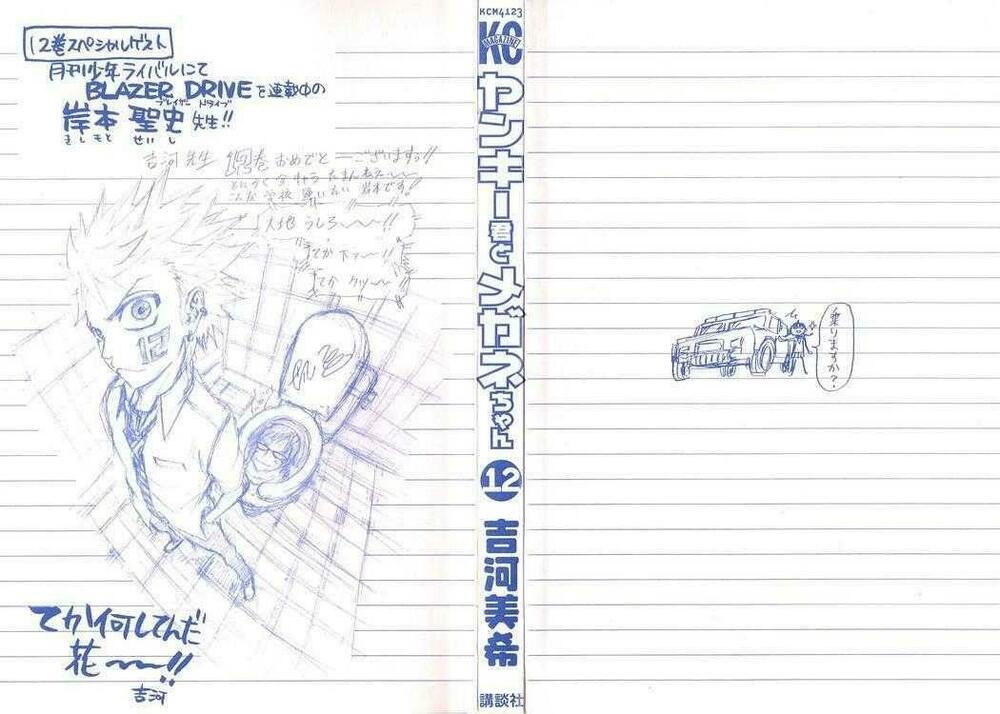 12巻スペシャルゲスト
月刊少年ライバルにて
BLAZER DRIVEを連載中の
ブレイザー ドライブ
岸本 聖史 先生!!
きしもと せいし
吉河先生 12巻おめでとーございますっ!!
大地うしろ〜〜〜!!
12
てか何してんだ
花〜〜!!
吉河
KCM4123
KC
MAGAZINE
ヤンキー君とメガネちゃん
12
吉河美希
講談社
乗りますか?